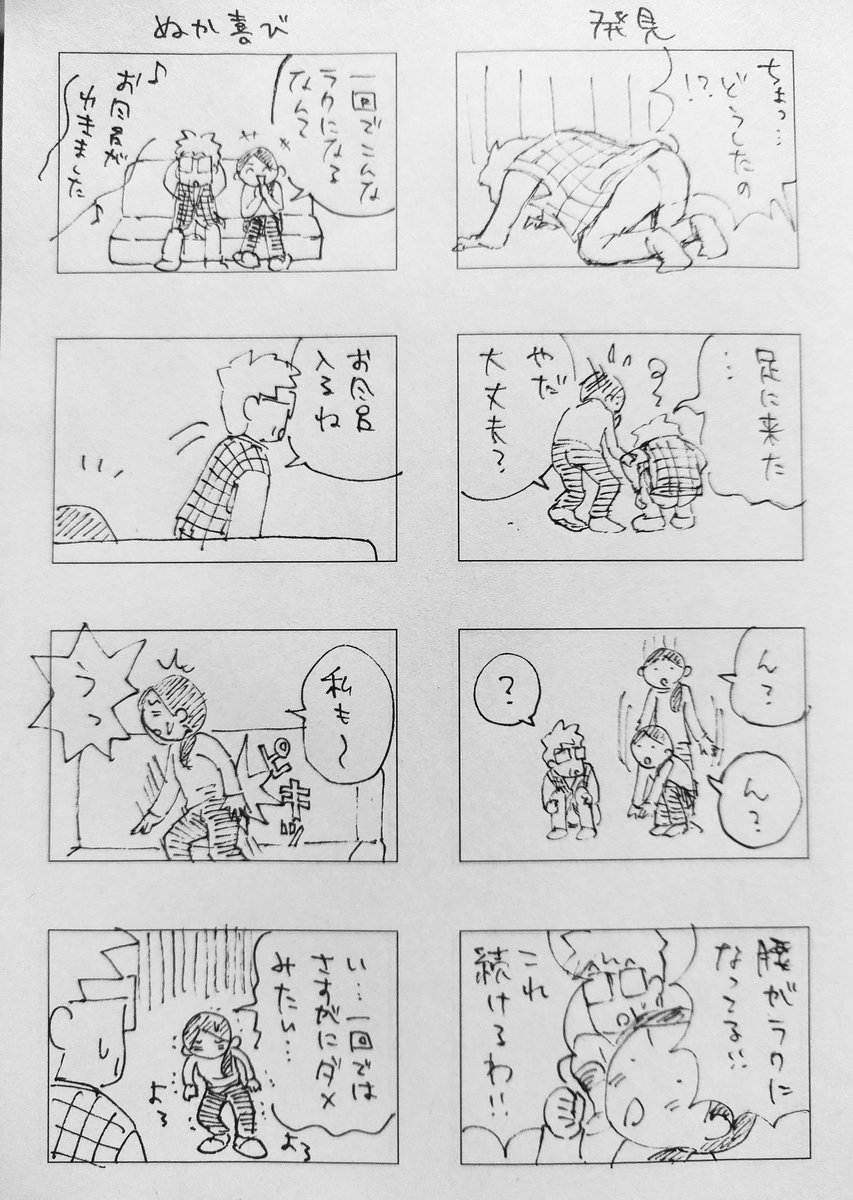 発見
ちょっ…
どうしたの
!?
足に来た
…
やだ
大丈夫?
ん?
ん?
?
腰がラクに
なってる!!
これ
続けるわ!!
ぬか喜び
一回でこんな
ラクになる
なんて
♪お風呂が
わきました♪
お風呂
入るね
私も〜
ピキッ
うっ
い…一回では
さすがにダメ
みたい…
よろ
よろ